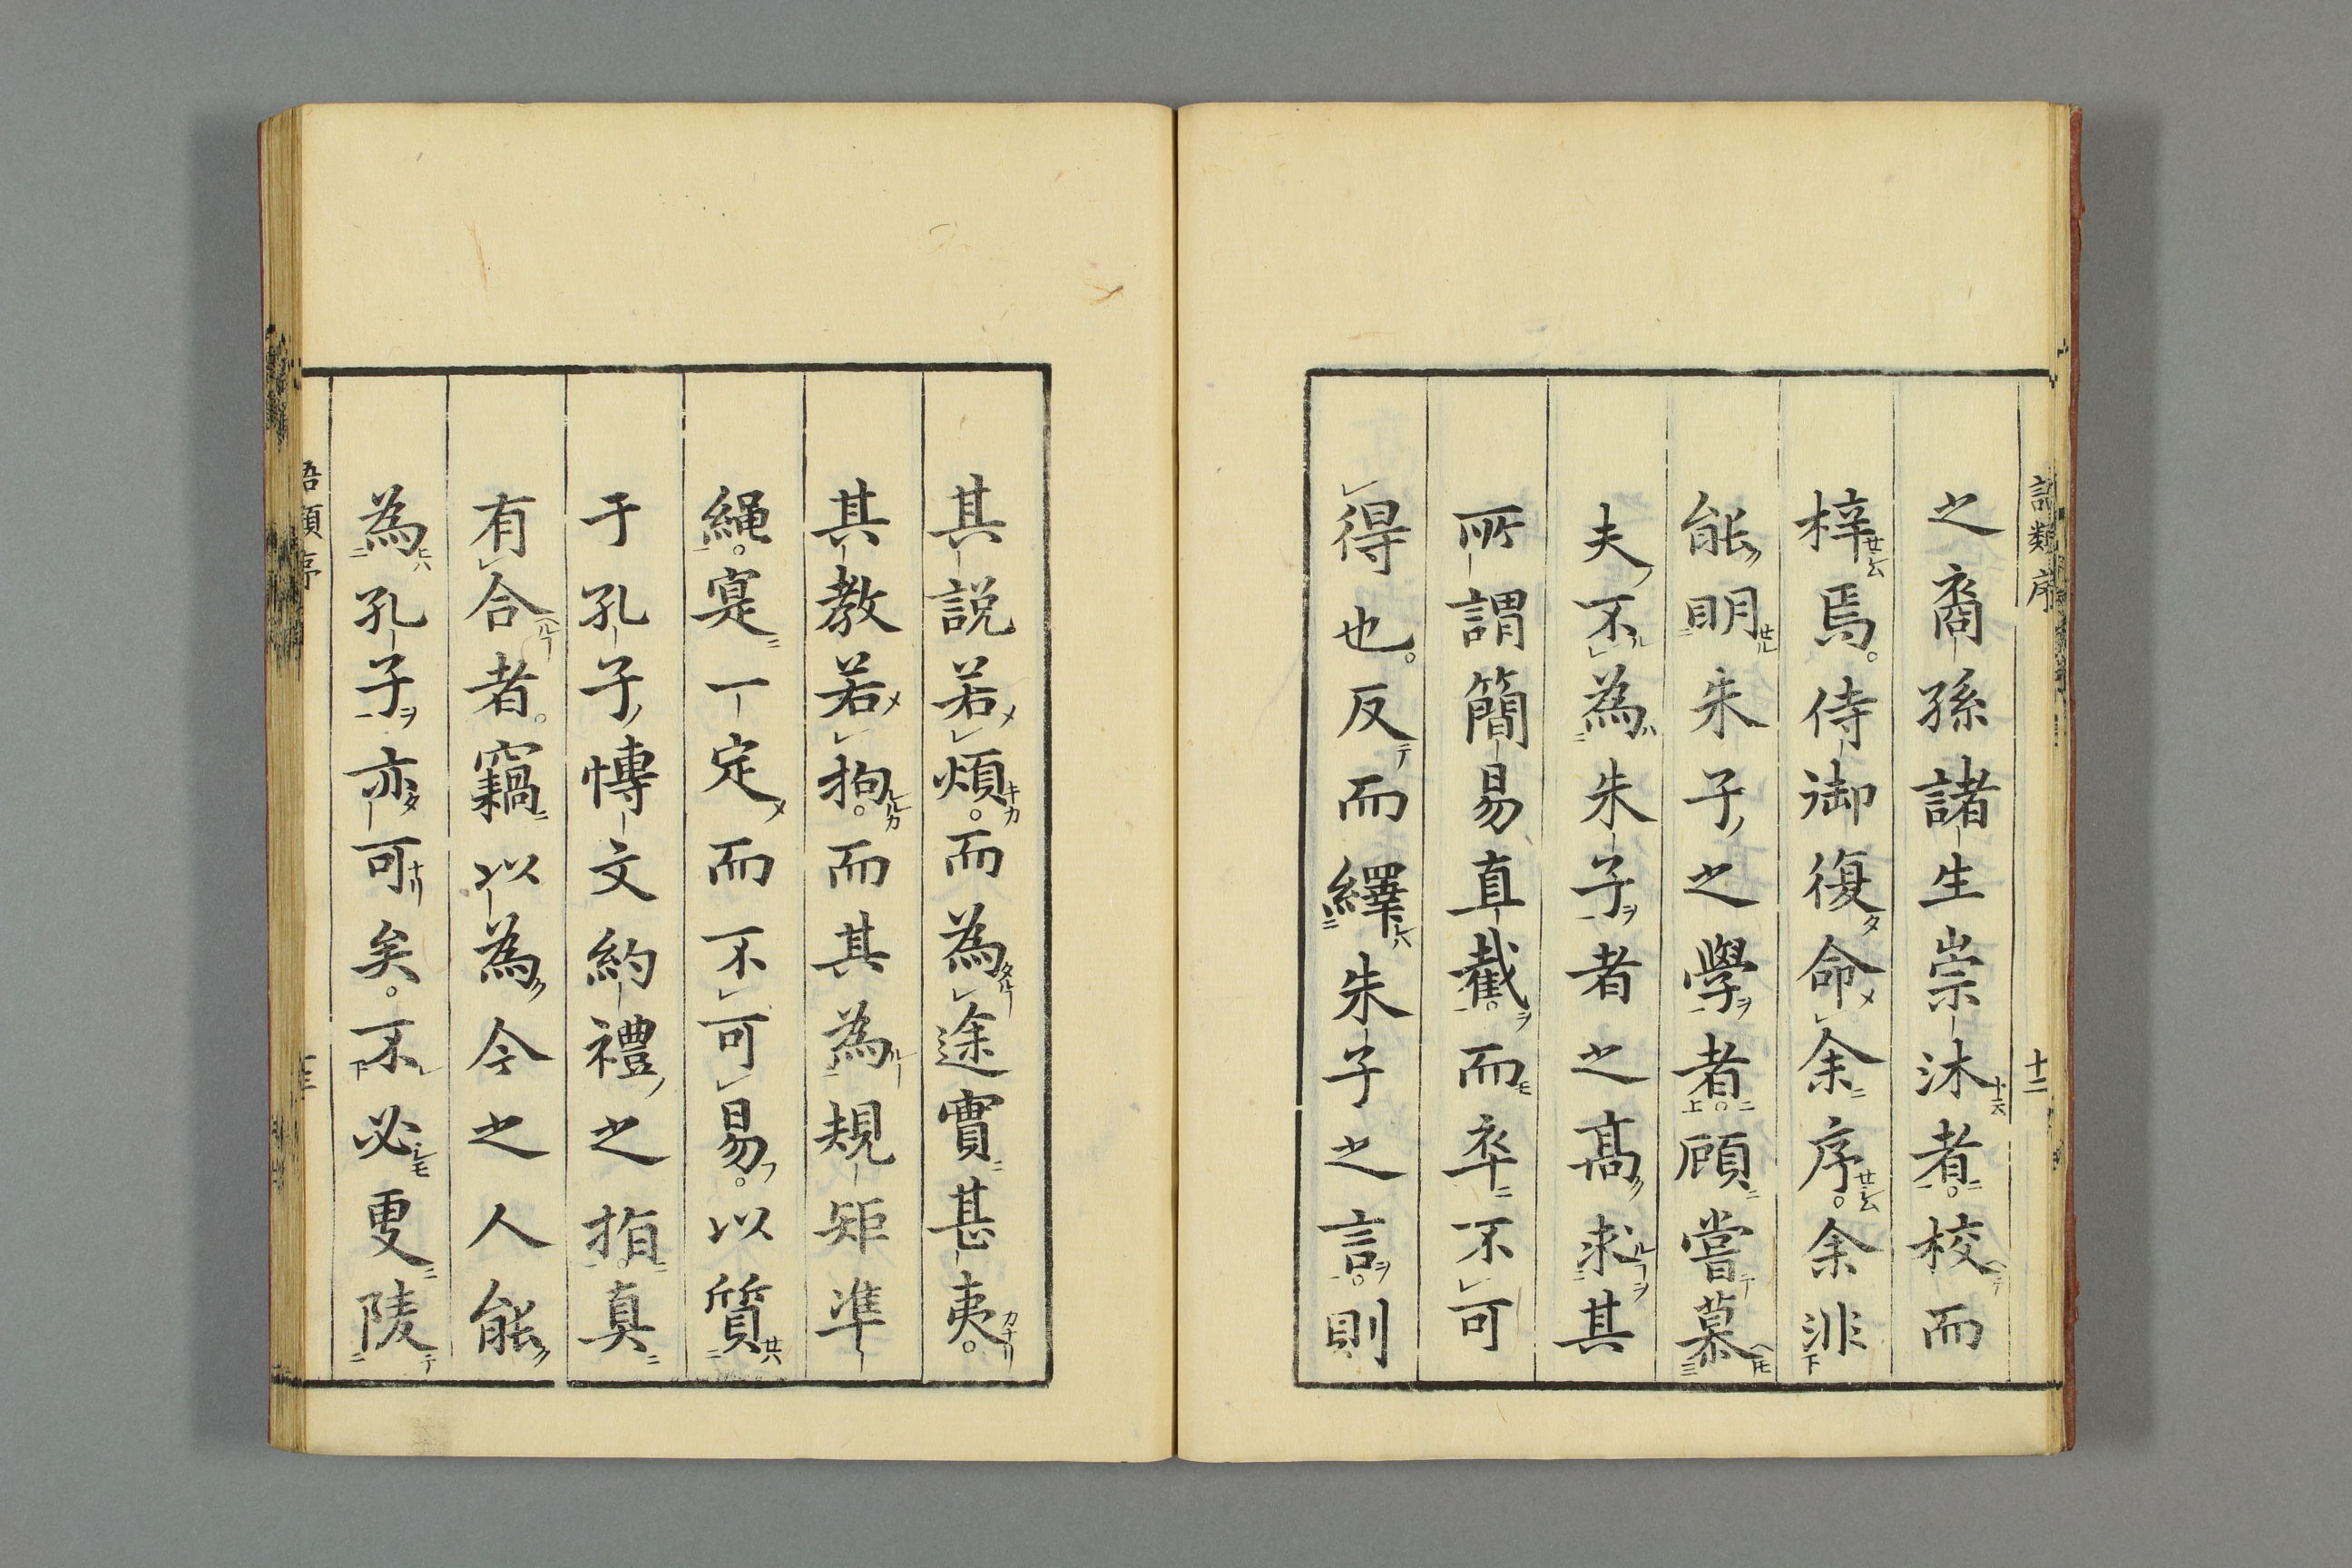 語類序
十二
之裔孫諸生崇沐者。校而
梓焉。侍御復命余序。余非
能明朱子之學者。顧嘗慕
夫不為朱子者之高求其
所謂簡易直截。而卒不可
得也。反而繹朱子之言。則
其説若煩。而為途實甚夷。
其教若拘。而其為規矩準
繩。寔一定而不可易。以質
于孔子愽文約禮之指。真
有合者。竊以為今之人能
為孔子亦可矣。不必更陵
語類序